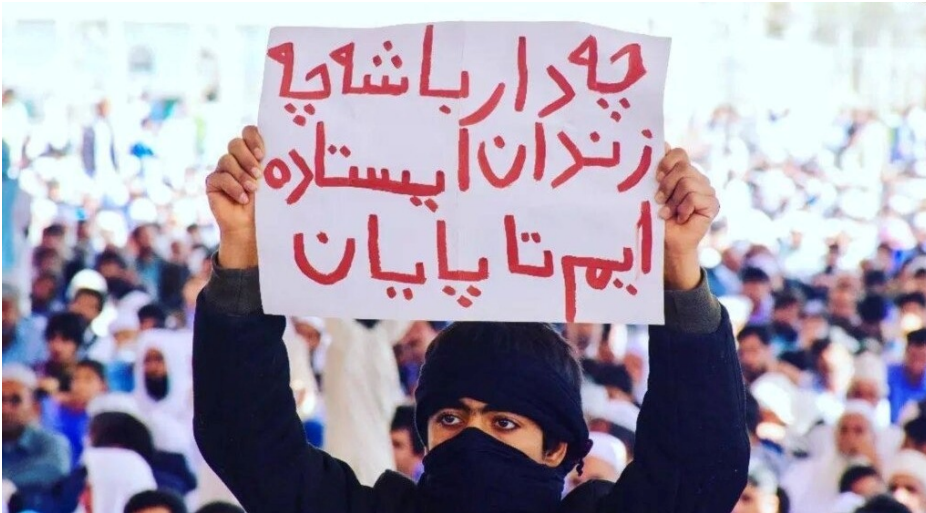 چه دار باشه چه
زندان ایستاده
ایم تا پایان